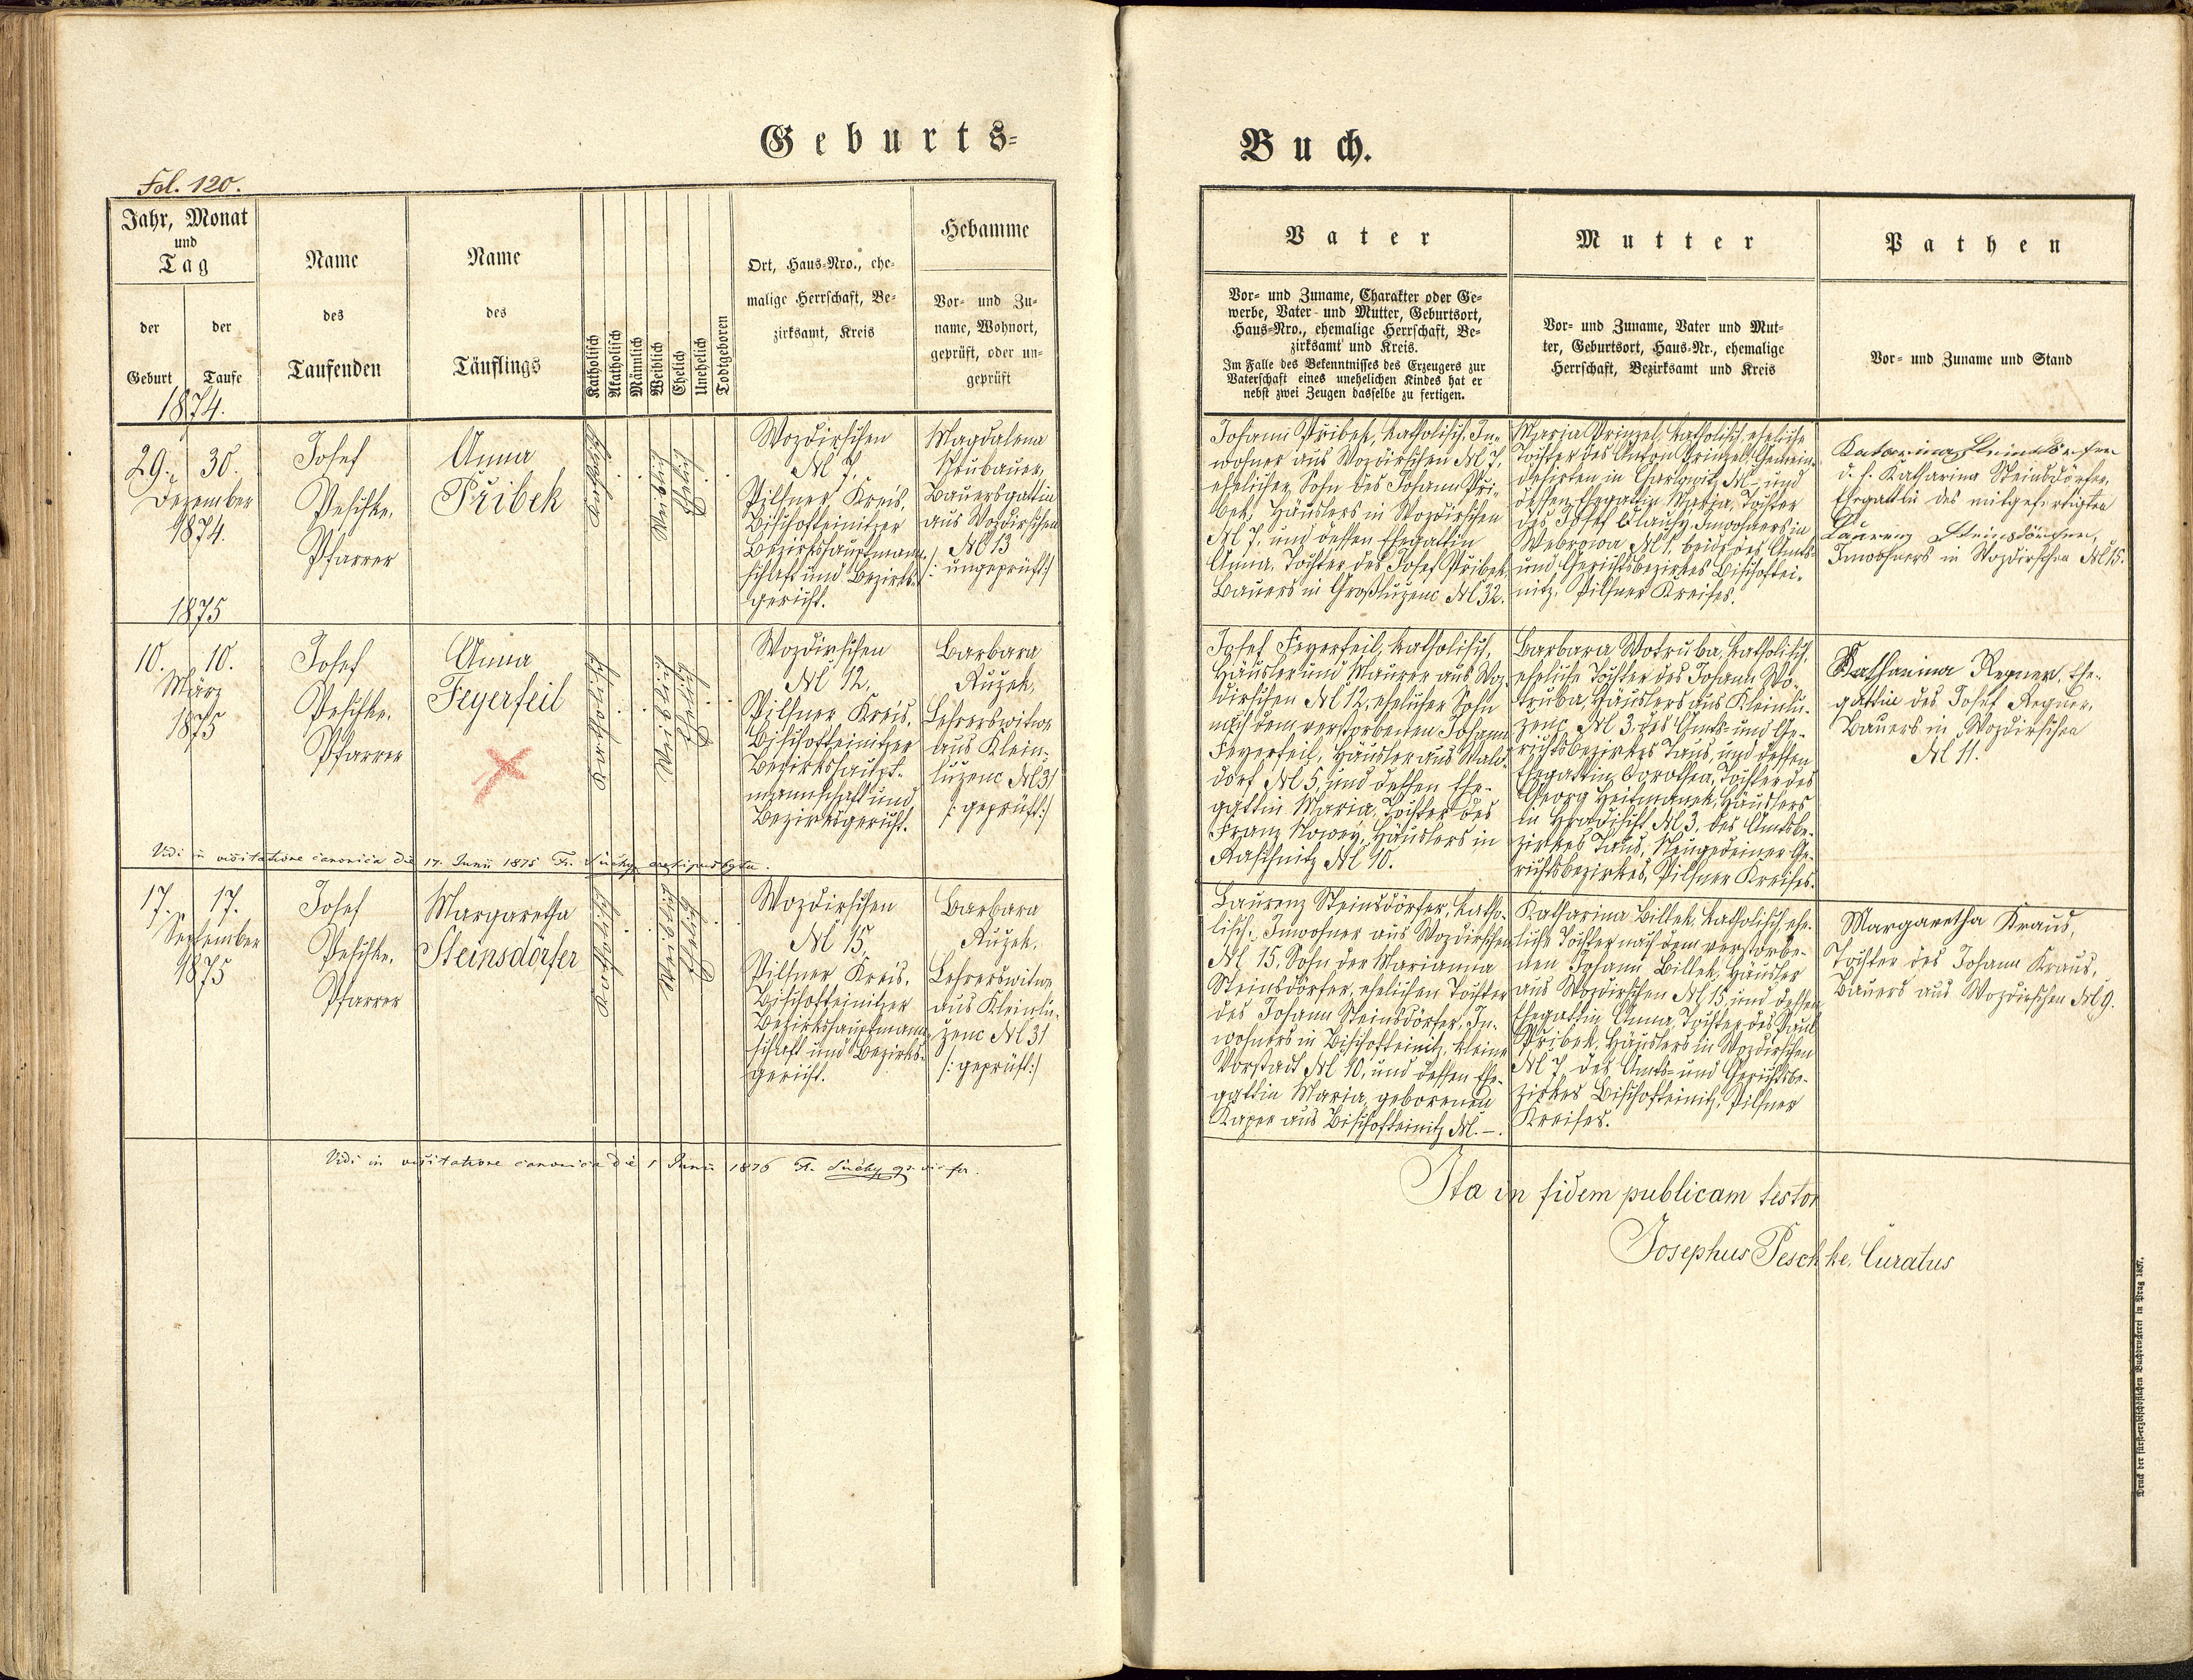 Geburts-
Buch.
Fol. 120.
Jahr, Monat
und
Tag
der
Geburt
der
Taufe
Name
des
Taufenden
Name
des
Täuflings
Katholisch
Akatholisch
Männlich
Weiblich
Ehelich
Unehelich
Todtgeboren
Ort, Haus-Nro., ehe-
malige Herrschaft, Be-
zirksamt, Kreis
Hebamme
Vor- und Zu-
name, Wohnort,
geprüft, oder un-
geprüft
Vater
Vor- und Zuname, Charakter oder Ge-
werbe, Vater- und Mutter, Geburtsort,
Haus-Nro., ehemalige Herrschaft, Be-
zirksamt und Kreis.
Im Falle des Bekenntnisses des Erzeugers zur
Vaterschaft eines unehelichen Kindes hat er
nebst zwei Zeugen dasselbe zu fertigen.
Mutter
Vor- und Zuname, Vater und Mut-
ter, Geburtsort, Haus-Nr., ehemalige
Herrschaft, Bezirksamt und Kreis
Pathen
Vor- und Zuname und Stand
1874.
29. 30.
Dezember
1874.
Josef
Peschke,
Pfarrer
Anna
Přibek
Katholisch
Weiblich
Ehelich
Wozdirschen
№ 7,
Pilsner Kreis,
Bischofteinitzer
Bezirkshauptmann-
schaft und Bezirks-
gericht.
Magdalena
Bauersgattin
aus Wozdirschen
№ 13
/: ungeprüft :/
Johann Přibek, katholisch, In-
wohner aus Wozdirschen № 7,
ehelicher Sohn des Johann Při-
bek, Häuslers in Wozdirschen
№ 7, und dessen Ehegattin
Anna, Tochter des Josef Přibek,
Bauers in Großluzenc № 32.
Maria Prinzel, katholisch, eheliche
Tochter des Anton Prinzel, Gemein-
dehirten in №- und
dessen Ehegattin Maria, Tochter
des Josef Inwohners in
Webrowa № 1, beide des Amts-
und Gerichtsbezirkes Bischoftei-
nitz, Pilsner Kreises.
Katharina Steinsdörfer
d. h. Katharina Steinsdörfer,
Ehegattin des mitgefertigten
Laurenz Steinsdörfer,
Inwohners in Wozdirschen № 15.
1875
10. 10.
März
1875
Josef
Peschke,
Pfarrer
Anna
Feyerfeil
Katholisch
Weiblich
Ehelich
Wozdirschen
№ 12,
Pilsner Kreis,
Bischofteinitzer
Bezirkshaupt-
mannschaft und
Bezirksgericht.
Barbara
Ružek,
Lehrerswitwe
aus Klein-
luzenc № 31
/: geprüft :/
Josef Feyerfeil, katholisch,
Häusler und Maurer aus Woz-
dirschen № 12, ehelicher Sohn
nach dem verstorbenen Johann
Feyerfeil, Häusler aus Wald-
dorf № 5, und dessen Ehe-
gattin Maria, Tochter des
Franz Nowey, Häuslers in
Raschnitz № 10.
Barbara Wotruba, katholisch,
eheliche Tochter des Johann Wo-
truba, Häuslers aus Kleinlu-
zenc, № 3, des Amts- und Ge-
richtsbezirkes Taus, und dessen
Ehegattin Dorothea, Tochter des
Georg Heitmanek, Häuslers
in Hradischt № 3, des Amtsbe-
zirkes Taus, Neugedeiner Ge-
richtsbezirkes, Pilsner Kreises.
Katharina Regner, Ehe-
gattin des Josef Regner,
Bauers in Wozdirschen
№ 11.
Vidi in visitatione canonica die 17. Junii 1875 Fr. Suchy
17. 17.
September
1875
Josef
Peschke,
Pfarrer
Margaretha
Steinsdörfer
Katholisch
Weiblich
Ehelich
Wozdirschen
№ 15,
Pilsner Kreis,
Bischofteinitzer
Bezirkshauptmann-
schaft und Bezirks-
gericht.
Barbara
Ružek,
Lehrerswitwe
aus Kleinlu-
zenc № 31
/: geprüft :/
Laurenz Steinsdörfer, katho-
lisch, Inwohner aus Wozdirschen
№ 15, Sohn der Marianna
Steinsdörfer, ehelichen Tochter
des Johann Steinsdörfer, In-
wohners in Bischofteinitz, kleine
Vorstadt № 10, und dessen Ehe-
gattin Maria, geborenen
Kaper aus Bischofteinitz №.-.
Katharina Billek, katholisch, ehe-
liche Tochter nach dem verstorbe-
nen Johann Billek, Häusler
aus Wozdirschen № 15, und dessen
Ehegattin Anna, Tochter des Paul
Přibek, Häuslers in Wozdirschen
№ 7, des Amts- und Gerichtsbe-
zirkes Bischofteinitz, Pilsner
Kreises.
Margaretha Kraus,
Tochter des Johann Kraus,
Bauers aus Wozdirschen № 9.
Vidi in visitatione canonica die 1 Junii 1876 Fr. Suchy
Ita in fidem publicam testor
Josephus Peschke, Curatus
Druck der fürst-erzbischöflichen Buchdruckerei in Prag 1857.